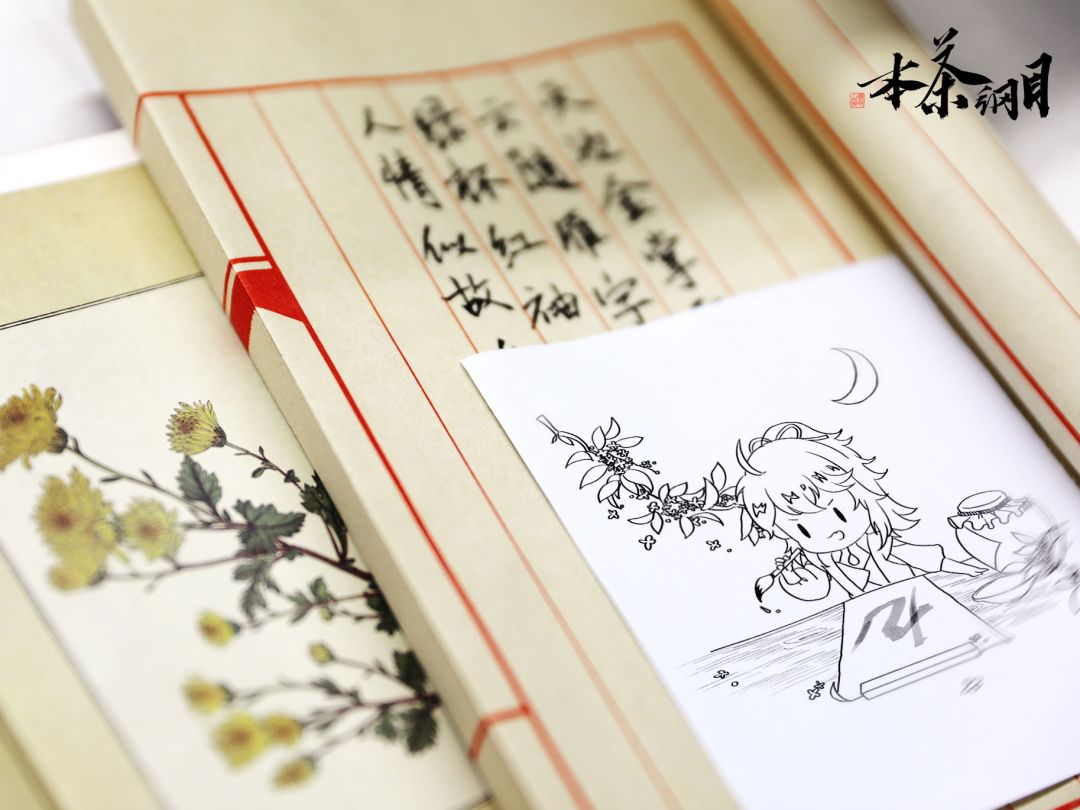 本茶綱目
天边金掌
云随雁字
绿杯红袖
人情似故